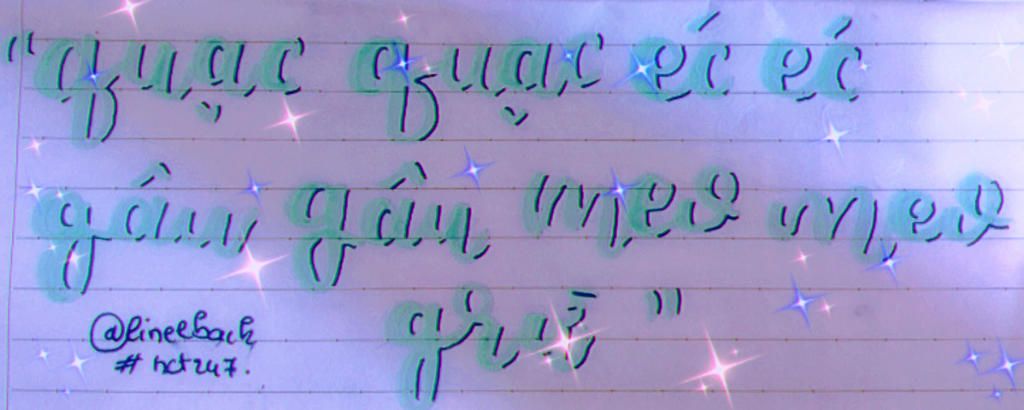 "quạc quạc éc éc
gâu gâu meo meo
"
@lineeback
# nct247.